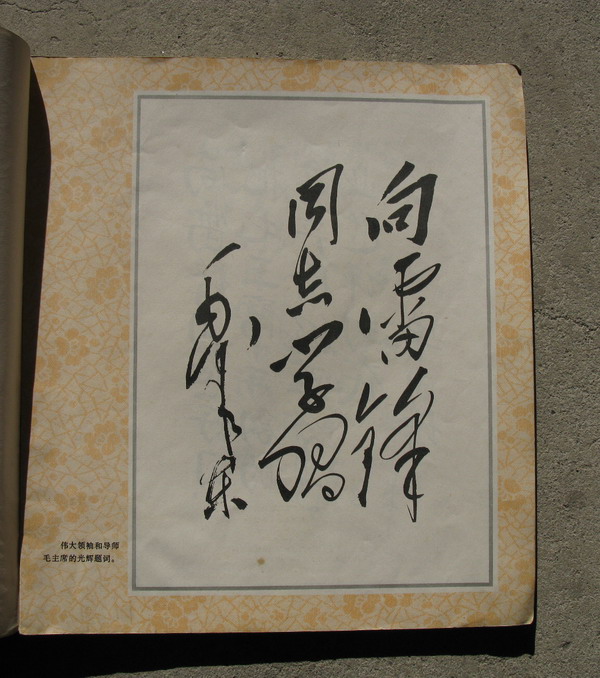 向雷锋
同志学习
毛泽东
伟大领袖和导师
毛主席的光辉题词。